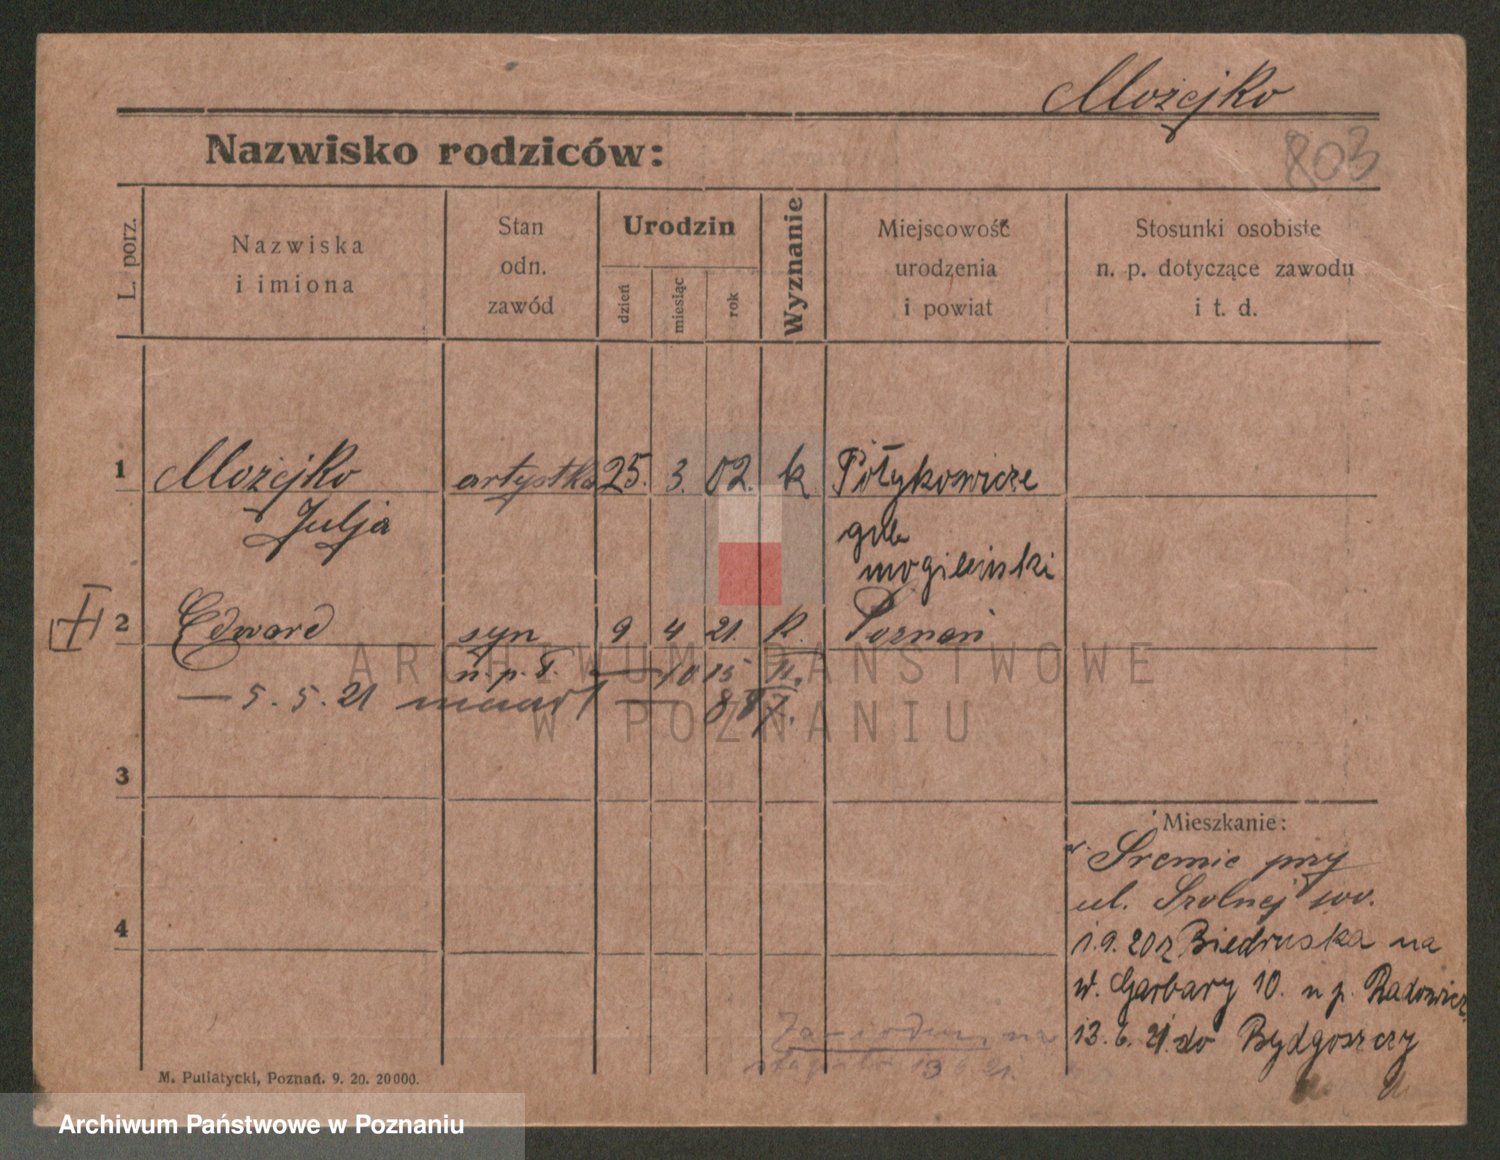 Możejko
803
Nazwisko rodziców:
L. porz.
Nazwiska
i imiona
Stan
odn.
zawód
Urodzin
dzień
miesiąc
rok
Wyznanie
Miejscowość
urodzenia
i powiat
Stosunki osobiste
n. p. dotyczące zawodu
i t. d.
1 Możejko artystka 25. 3. 02. k Połykowicze
Julja
gub
mogileński
2 Edward syn 9 4 21. k. Poznań
n. p. T. — 10 15
— 5. 5. 21 — 8
3
4
Mieszkanie:
w Śremie przy
ul. Szolnej
1.9.20 z Biedruska na
W. Garbary 10. n p. Radowicz
13. 6. 21. do Bydgoszczy
na
13 6 21.
M. Putiatycki, Poznań. 9. 20. 20000.
ARCHIWUM PAŃSTWOWE
W POZNANIU
Archiwum Państwowe w Poznaniu